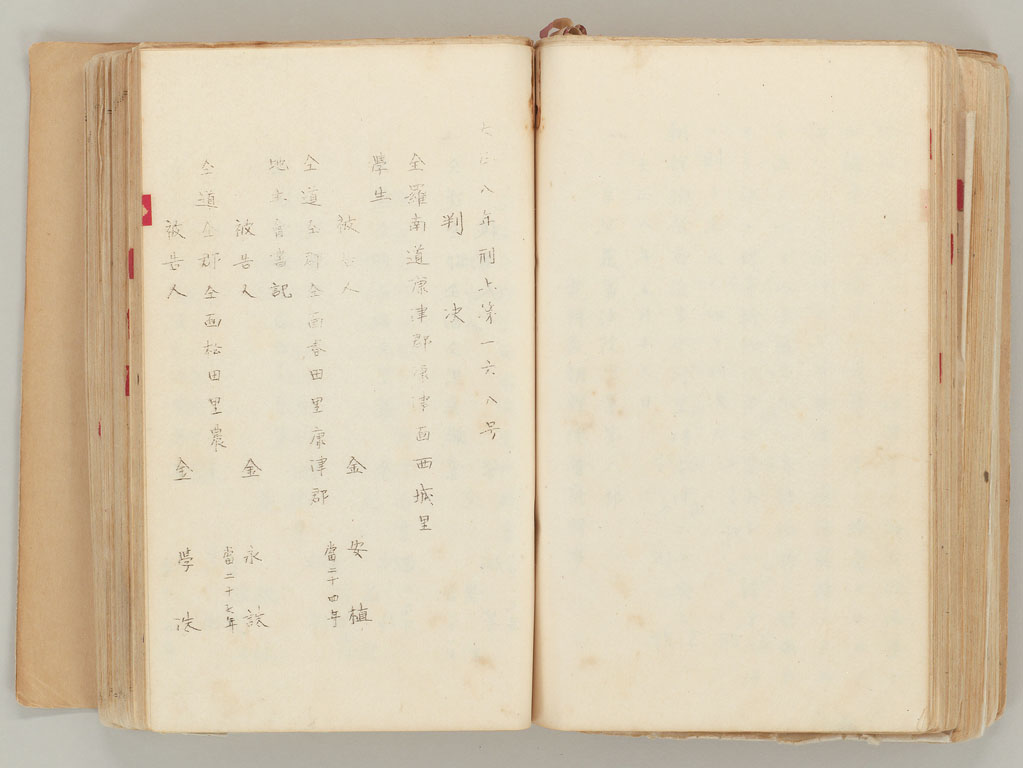 大正八年刑上第一六八号
判決
全羅南道康津郡康津面西城里
學生
被告人 金安植
當二十四年
仝道仝郡仝面春田里康津郡
地主會書記
被告人 金永
當二十七年
仝道仝郡仝面松田里農
被告人 金學洙